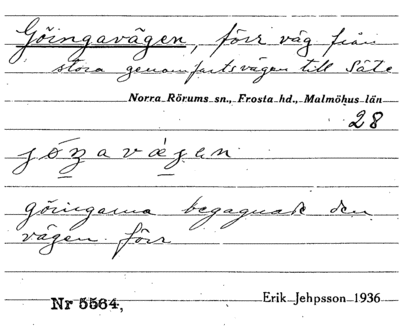 Göingavägen, förr väg från
stora genomfartsvägen till Säte
Norra Rörums sn., Frosta hd., Malmöhus län
28
göingarna begagnade den
vägen förr
Nr 5564,
Erik Jehpsson 1936